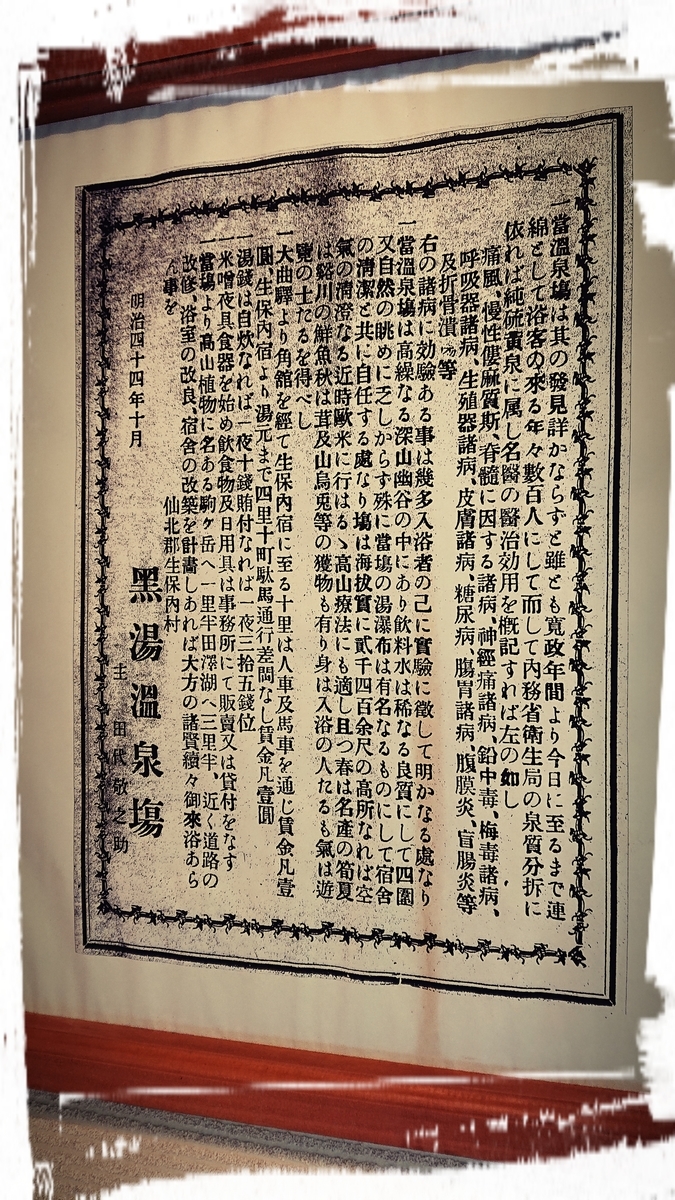 一當溫泉塲は其の發見詳かならずと雖とも寬政年間より今日に至るまで連
綿として浴客の來る年々數百人にして而して內務省衛生局の泉質分拆に
依れば純硫黃泉に属し名醫の醫治効用を槪記すれば左の如し
痛風、慢性僂麻質斯、脊髓に因する諸病、神經痛諸病、鉛中毒、梅毒諸病、
呼吸器諸病、生殖器諸病、皮膚諸病、糖尿病、腸胃諸病、腹膜炎、盲腸炎等
及折骨潰瘍等
右の諸病に効驗ある事は幾多入浴者の己に實驗に徵して明かなる處なり
一當溫泉塲は高繰なる深山幽谷の中にあり飮料水は稀なる良質にして四圍
又自然の眺めに乏しからす殊に當塲の湯瀑布は有名なるものにして宿舍
の淸潔と共に自任する處なり塲は海拔實に貳千四百余尺の高所なれば空
氣の淸澄なる近時歐米に行はるゝ高山療法にも適し且つ春は名產の筍夏
は谿川の鮮魚秋は茸及山鳥兎等の獲物も有り身は入浴の人たるも氣は遊
覽の士たるを得べし
一大曲驛より角館を經て生保內宿に至る十里は人車及馬車を通じ賃金凡壹
圓、生保內宿より湯元まで四里十町駄馬通行差閊なし賃金凡壹圓
一湯錢は自炊なれば一夜十錢賄付なれば一夜三拾五錢位
一米噌夜具食器を始め飮食物及日用具は事務所にて販賣又は貸付をなす
一當塲より高山植物に名ある駒ヶ岳へ一里半田澤湖へ三里半、近く道路の
改修、浴室の改良、宿舍の改築を計畵しあれば大方の諸賢續々御來浴あら
ん事を
仙北郡生保內村
明治四十四年十月
黑湯溫泉塲
主 田代敬之助